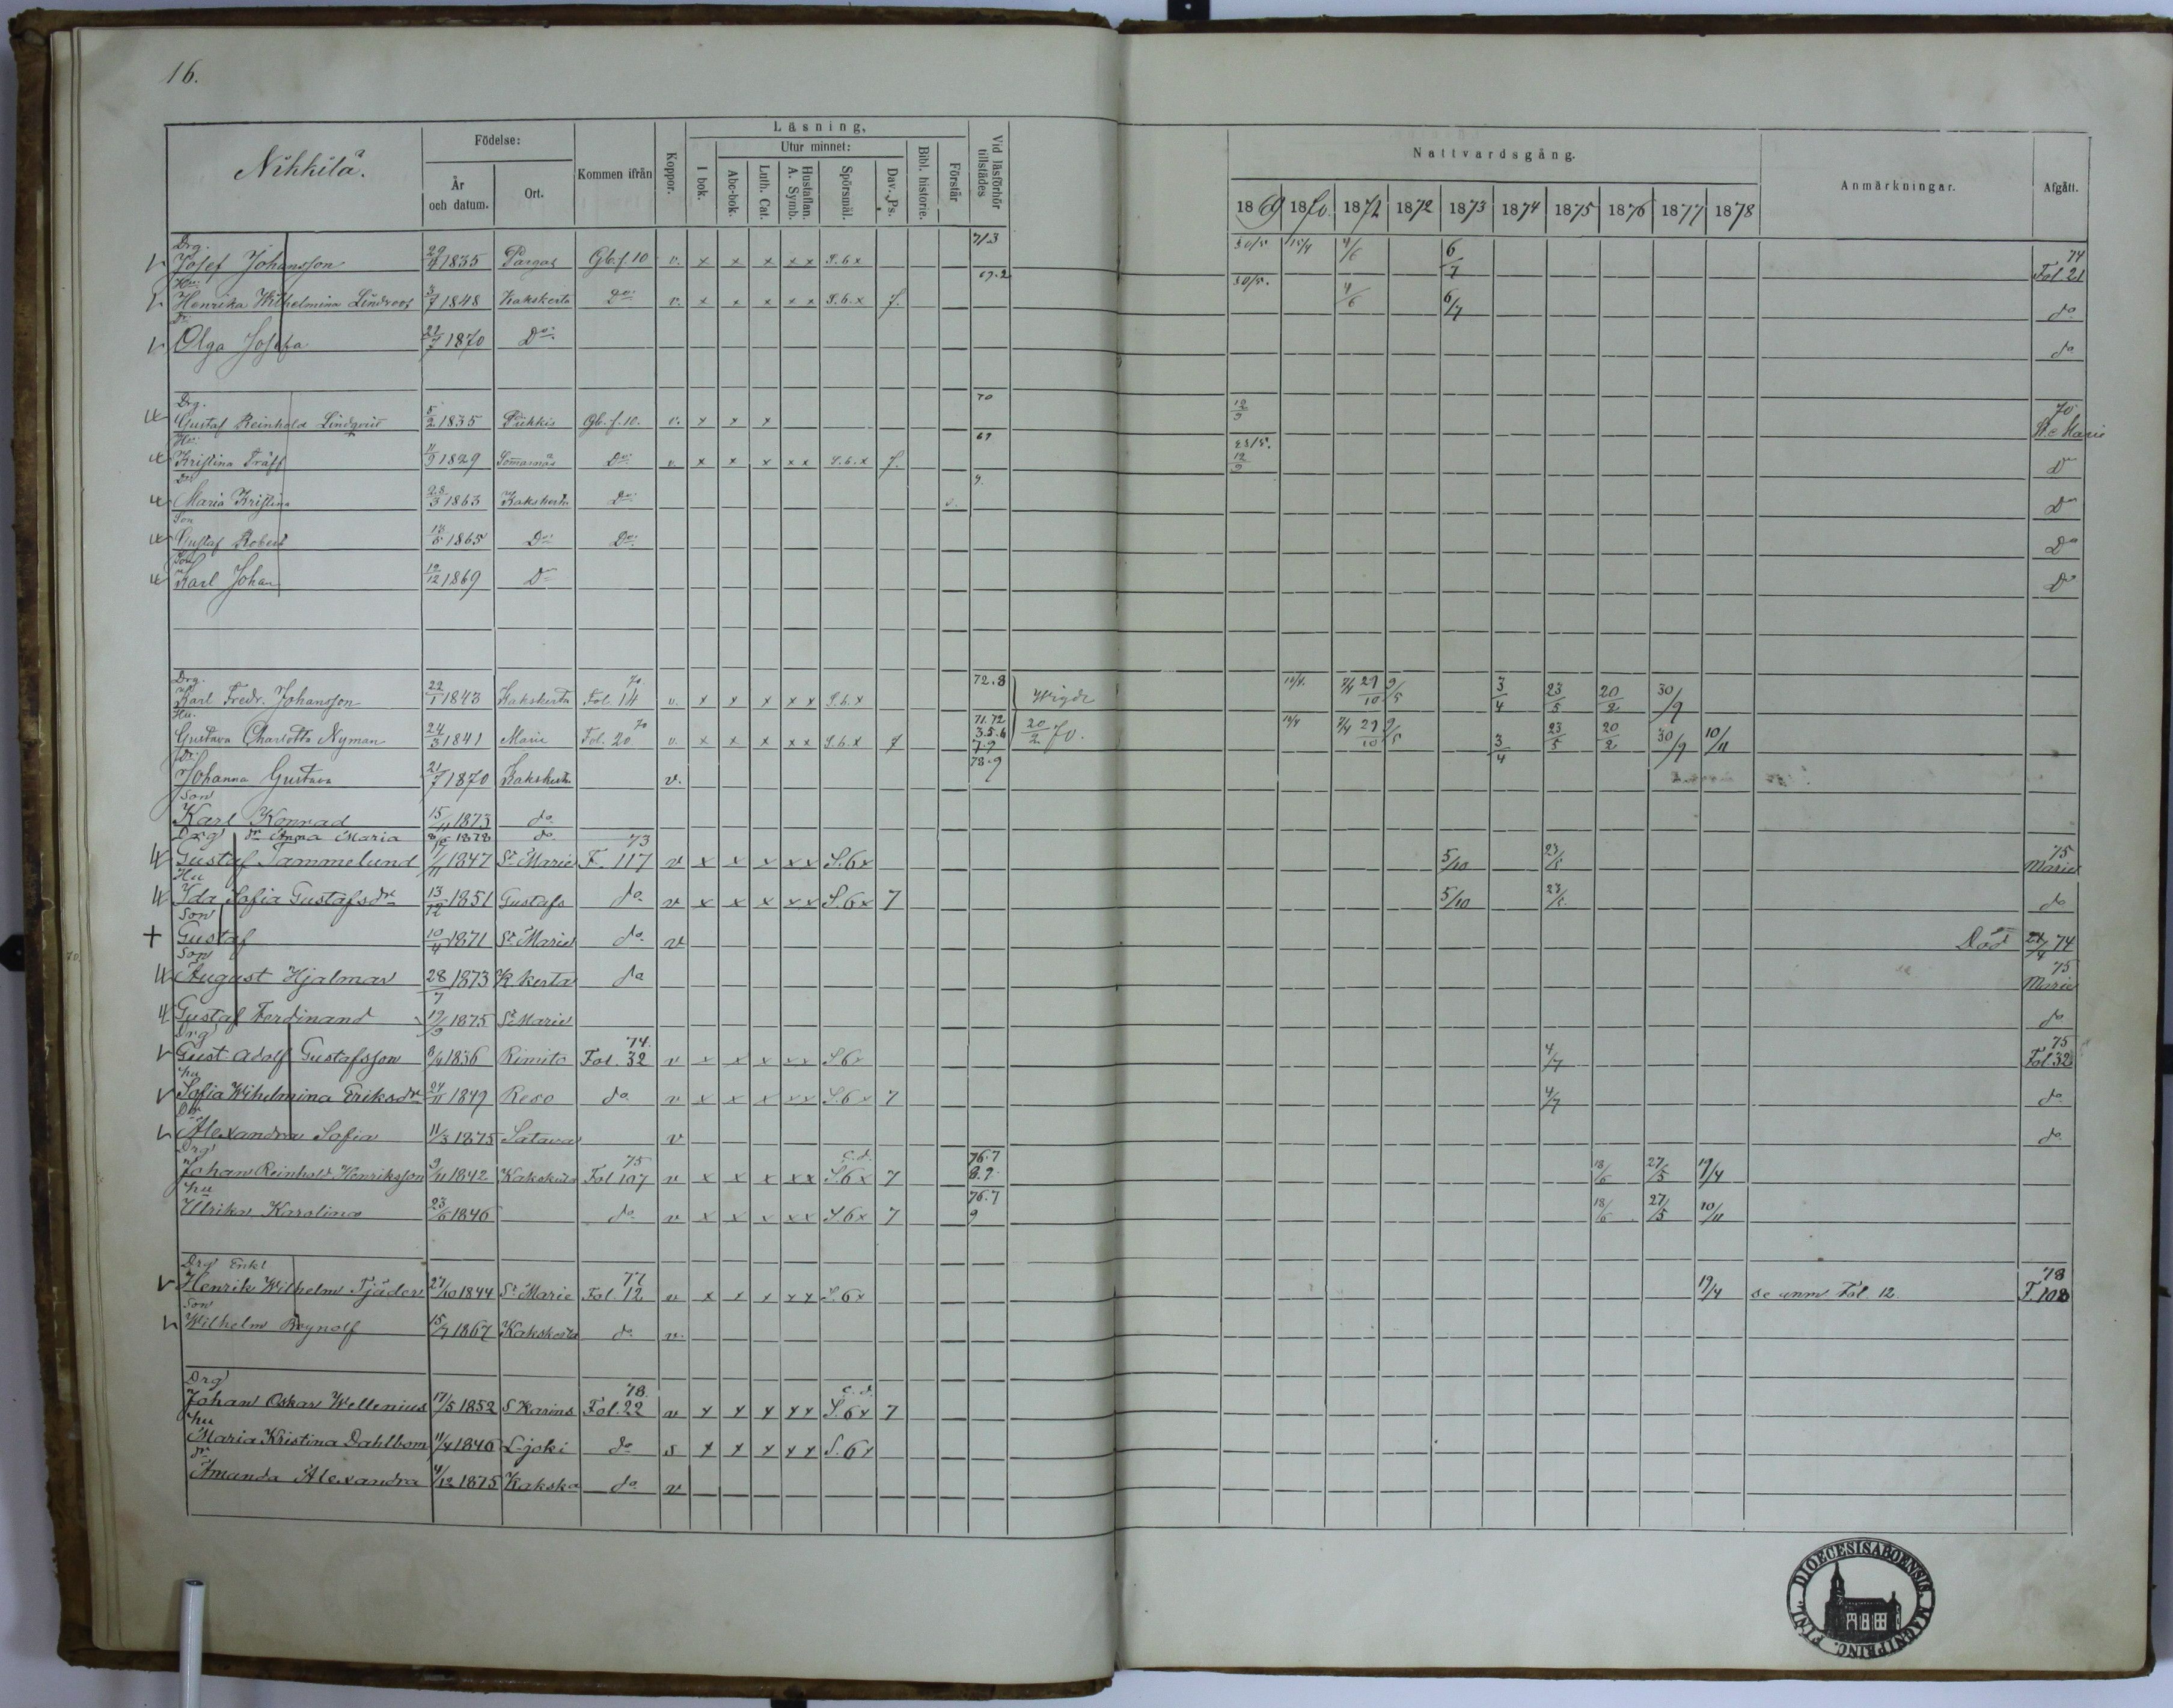 16.
Nikkilä.
Födelse:
År och datum.
Ort.
Kommen ifrån
Koppor.
Läsning,
I bok.
Utur minnet:
Abc-bok.
Luth. Cat.
Hustaflan. A. Symb.
Spörsmål.
Dav. Ps.
Bibl. historie.
Förstår
Vid läsförhör tillstädes
Nattvardsgång.
1869 1870. 1871 1872 1873 1874 1875 1876 1877 1878
Anmärkningar.
Afgått.
Drg.
Josef Johansson 29/4 1835 Pargas Gb. f. 10 v. x x x x x S. 6 x 71.3 30/5 15/4 4/6 6/7 74 Fol. 21
Hu.
Henrika Wilhelmina Lindroos 3/7 1848 Kakskerta Do v. x x x x x S. 6. x 7. 69.2 30/5. 4/6 6/7 do
Dr
Olga Josefa 22/7 1870 Do do
Drg.
Gustaf Reinhold Lindqvist 5/2 1835 Piikkis Gb. f. 10. v. x x x 70 12/9 70 St. Marie
Hu
Kristina Träff 11/9 1829 Do v. x x x x x S. 6. x 7. 69 23/5. 12/9 Do
Dr
Maria Kristina 28/3 1863 Kakskerta Do 9. Do
Son
Gustaf Robert 1865 Do Do Do
Son
Karl Johan 19/12 1869 Do Do
Drg.
Karl Fredr. Johansson 22/1 1843 Kakskerta Fol. 14 70 v. x x x x x S. 6. x 72.8 Wigde 10/4. 7/4 29/10 9/5 3/4 23/5 20/2 30/9
Hu.
Gustava Charlotta Nyman 24/3 1841 Marie Fol. 20 70 v. x x x x x S. 6. x 7 71.72 3.5.6 7.9 20/2 70. 10/4 7/4 29/10 9/5 3/4 23/5 20/2 30/9 10/11
Dr
Johanna Gustava 21/7 1870 Kakskerta v. 78.9
Son
Karl Konrad 15/11 1873 do
dr Anna Maria 8/10 1878 do
Drg
Gustaf Tammelund 17/11 1847 St Marie F. 117 73 v x x x x x S. 6 x 5/10 23/5 75 Marie
Hu
Ida Sofia Gustafsdr 13/12 1851 Gustafs do v x x x x x S. 6 x 7 5/10 23/5 do
Son
+ Gustaf 10/4 1871 St Marie do v Död 24/4 74
Son
August Hjalmar 28/7 1873 K. kerta do 75 Marie
Gustaf Ferdinand 19/9 1875 St Marie do
Drg
Gust. Adolf Gustafsson 1836 Rimito Fol. 32 74. v x x x x x S. 6 x 4/7 75 Fol. 32
hu
Sofia Wilhelmina Eriksdr 24/11 1849 Reso do v x x x x x S. 6 x 7 4/7 do
Dr
Alexandra Sofia 11/3 1875 Satava v do
Drg
Johan Reinhold Henriksson 9/11 1842 Fol 107 75 v x x x x x c. d. S. 6 x 7 76.7 8.9. 18/6 27/5 19/4
hu
Ulrika Karolina 23/6 1846 do v x x x x x S. 6 x 7 76.7 9 18/6 27/5 10/11
Drg Enkl
Henrik Wilhelm Tjäder 27/10 1844 St Marie Fol. 12 77 v x x x x x S. 6 x 19/4 se anm Fol. 12 78 F. 108
Son
Wilhelm Brynolf 15/7 1867 Kakskerta do v.
Drg
Johan Oskar Wellenius 17/5 1852 S Karins Fol. 22 78. v x x x x x c. d. S. 6 x 7
hu
Maria Kristina Dahlbom 11/4 1846 L-joki do s x x x x x S. 6 x
dr
Amanda Alexandra 4/12 1875 Kakska do v
DIOECESIS ABOENSIS. MAGNI PRINC. FINL.